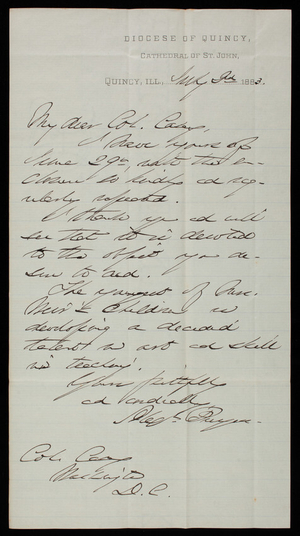 DIOCESE OF QUINCY,
CATHEDRAL OF ST. JOHN,
QUINCY, ILL., July 2d 1883.
My dear Col. Casey,
I have yours of
June 29th, with the en-
closure so kindly & reg-
ularly repeated.
I thank you & will
see that it is devoted
to the object you de-
sire to aid.
The youngest of
children is
developing a decided
talent in art & skill
in teaching.
Yours faithfully
& cordially
Alexr. Burgess.
Col. Casey
Washington
D.C.